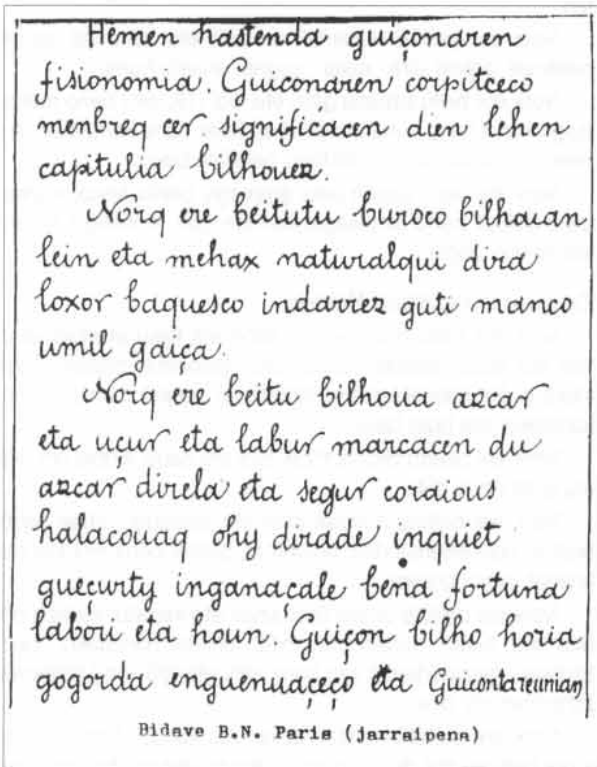 Hemen hastenda guiçondren
fisionomia. Guicondren corpitceco
menbreq cer significacen dien lehen
capitulia bilhouez.
Norq ere beitutu buroco bilhouan
lein eta mehax naturalqui dira
loxor baquesco indarrez guti manco
umil gaiça.
Norq ere beitu bilhoua azcar
eta uçur eta labur marcacen du
azcar direla eta segur coraious
halacouaq ohy dirade inquiet
gueçurty inganaçale bena fortuna
labori eta houn. Guiçon bilho horia
gogorda enguenuaçeço eta Guicontareunian
Bidave B.N. Paris (jarraipena)